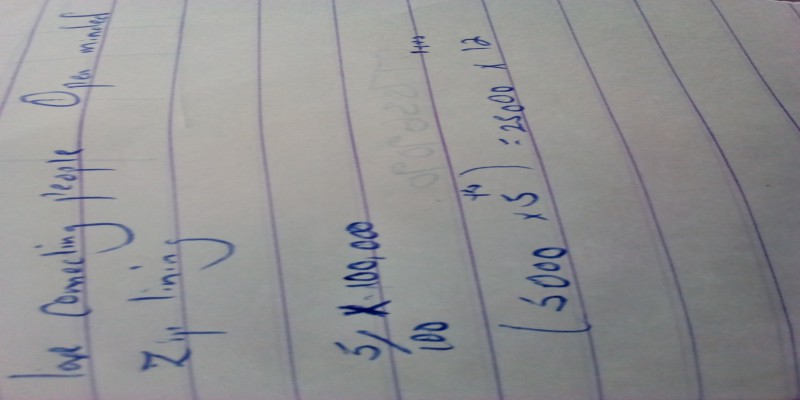 love connecting people Open minded
Zip lining
5/100 X 100,000
(5000 x 5) = 25000 x 12